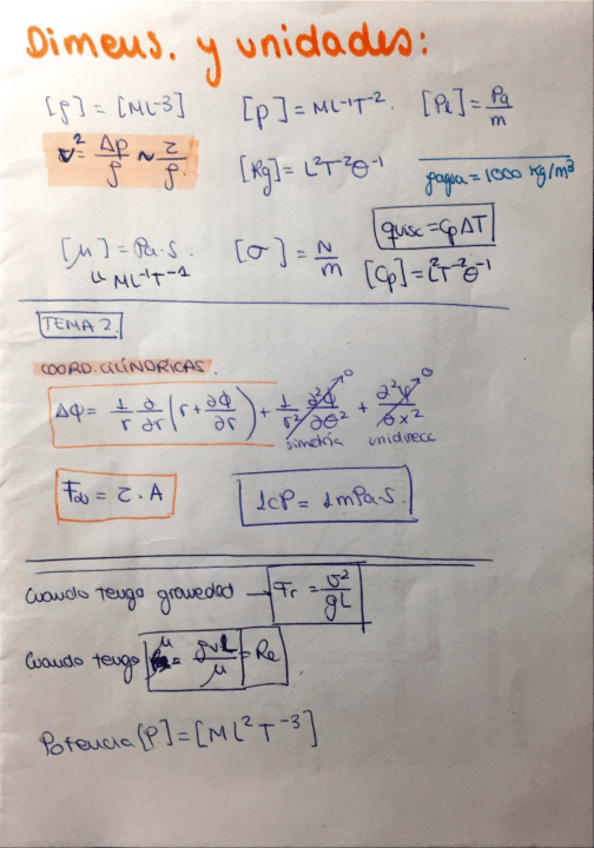 Dimens. y unidades:
[ρ] = [ML-3] [p] = ML⁻¹T⁻². [Pl] = Pa/m
v² = Δp/ρ ~ τ/ρ. [Rg] = L²T⁻²θ⁻¹ ρagua = 1000 kg/m³
[μ] = Pa·s. [σ] = N/m quisc = CpΔT
ML⁻¹T⁻¹ [Cp] = L²T⁻²θ⁻¹
TEMA 2.
COORD. CILÍNDRICAS.
ΔΦ = 1/r ∂/∂r (r + ∂Φ/∂r) + 1/r² ∂²Φ/∂θ² → 0 + ∂²φ/∂x² → 0
simetría unidirecc
Fab = τ · A 1cP = 1mPa·s.
Cuando tengo gravedad → Fr = v²/gL
Cuando tengo μ = ρvL/μ = Re
Potencia [P] = [ML²T⁻³]